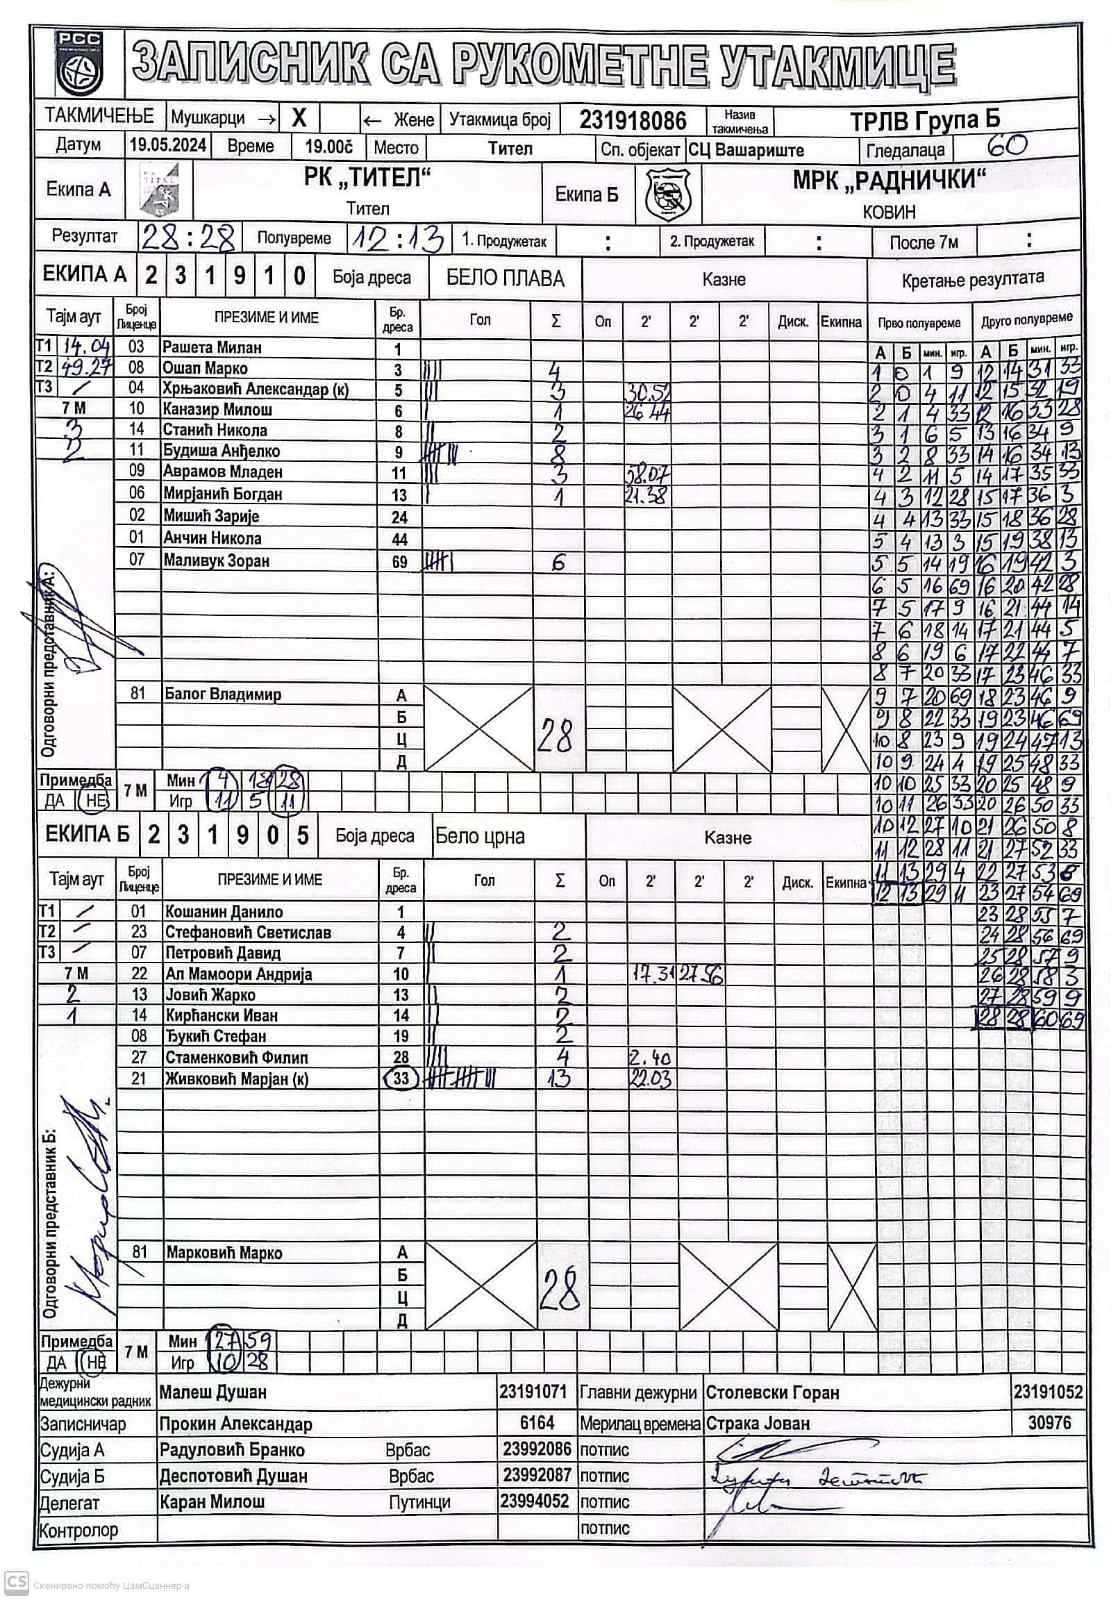 РСС
ЗАПИСНИК СА РУКОМЕТНЕ УТАКМИЦЕ
ТАКМИЧЕЊЕ Мушкарци → X ← Жене Утакмица број 231918086 Назив такмичења ТРЛВ Група Б
Датум 19.05.2024 Време 19.00č Место Тител Сп. објекат СЦ Вашариште Гледалаца 60
Екипа А РК „ТИТЕЛ“ Тител Екипа Б МРК „РАДНИЧКИ“ КОВИН
Резултат 28:28 Полувреме 12:13 1. Продужетак : 2. Продужетак : После 7м :
ЕКИПА А 2 3 1 9 1 0 Боја дреса БЕЛО ПЛАВА Казне Кретање резултата
Тајм аут Број Лиценце ПРЕЗИМЕ И ИМЕ Бр. дреса Гол Σ Оп 2' 2' 2' Диск. Екипна Прво полувреме Друго полувреме
А Б мин. игр. А Б мин. игр.
Т1 14.04 03 Рашета Милан 1
Т2 49.27 08 Ошап Марко 3 |||| 4 1 0 1 9 12 14 31 33
Т3 / 04 Хрњаковић Александар (к) 5 ||| 3 30.52 2 0 4 11 12 15 32 19
7 М 10 Каназир Милош 6 | 1 26.44 2 1 4 33 12 16 33 28
3 14 Станић Никола 8 || 2 3 1 6 5 13 16 34 9
2 11 Будиша Анђелко 9 8 3 2 8 33 14 16 34 13
09 Аврамов Младен 11 ||| 3 58.07 4 2 11 5 14 17 35 33
06 Мирјанић Богдан 13 | 1 21.38 4 3 12 28 15 17 36 3
02 Мишић Зарије 24 4 4 13 33 15 18 36 28
01 Анчин Никола 44 5 4 13 3 15 19 38 13
07 Маливук Зоран 69 6 5 5 14 19 16 19 42 3
6 5 16 69 16 20 42 28
7 5 17 9 16 21 44 14
7 6 18 14 17 21 44 5
8 6 19 6 17 22 44 7
8 7 20 33 17 23 46 33
Одговорни представник А:
81 Балог Владимир А 28 9 7 20 69 18 23 46 9
Б 9 8 22 33 19 23 46 69
Ц 10 8 23 9 19 24 47 13
Д 10 9 24 4 19 25 48 33
Примедба ДА НЕ 7 М Мин 4 18 28 10 10 25 33 20 25 48 9
Игр 11 5 11 10 11 26 33 20 26 50 33
ЕКИПА Б 2 3 1 9 0 5 Боја дреса Бело црна Казне 10 12 27 10 21 26 50 8
11 12 28 11 21 27 52 33
Тајм аут Број Лиценце ПРЕЗИМЕ И ИМЕ Бр. дреса Гол Σ Оп 2' 2' 2' Диск. Екипна 11 13 29 4 22 27 53 6
12 13 29 11 23 27 54 69
Т1 / 01 Кошанин Данило 1 23 28 55 7
Т2 / 23 Стефановић Светислав 4 || 2 24 28 56 69
Т3 / 07 Петровић Давид 7 || 2 25 28 57 9
7 М 22 Ал Мамоори Андрија 10 | 1 17.31 27.56 26 28 58 3
2 13 Јовић Жарко 13 || 2 27 28 59 9
1 14 Кирћански Иван 14 || 2 28 28 60 69
08 Ђукић Стефан 19 || 2
27 Стаменковић Филип 28 |||| 4 2.40
21 Живковић Марјан (к) 33 13 22.03
Одговорни представник Б:
81 Марковић Марко А 28
Б
Ц
Д
Примедба ДА НЕ 7 М Мин 27 59
Игр 10 28
Дежурни медицински радник Малеш Душан 23191071 Главни дежурни Столевски Горан 23191052
Записничар Прокин Александар 6164 Мерилац времена Страка Јован 30976
Судија А Радуловић Бранко Врбас 23992086 потпис
Судија Б Деспотовић Душан Врбас 23992087 потпис
Делегат Каран Милош Путинци 23994052 потпис
Контролор потпис
CS Скенирано помоћу ЦамСцаннер-а